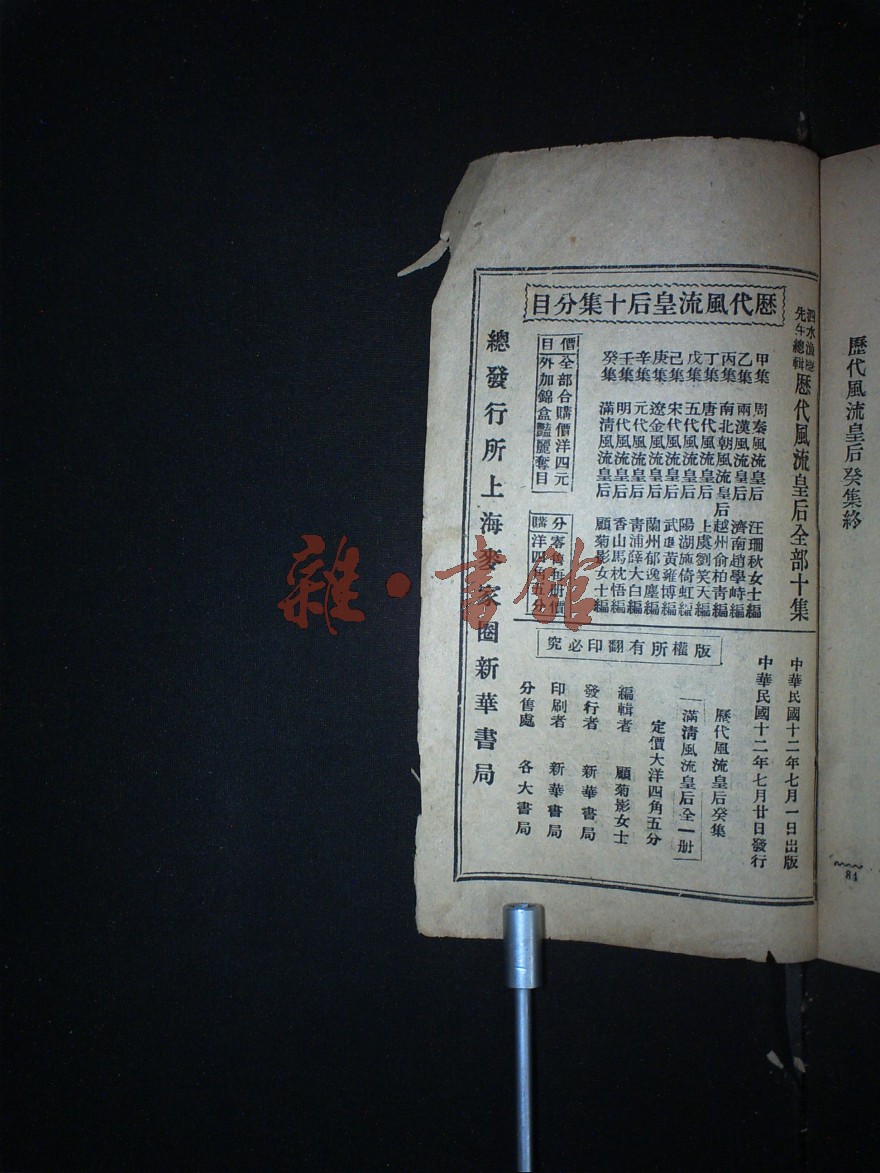 歷代風流皇后癸集終
84
先生總輯 歷代風流皇后全部十集
歷代風流皇后十集分目
甲集 周秦風流皇后 汪珊秋女士編
乙集 兩漢風流皇后 濟南趙學峙編
丙集 南北朝風流皇后 越州俞柏青編
丁集 唐代風流皇后 上虞劉笑天編
戊集 五代風流皇后 陽湖施倚虹編
己集 宋代風流皇后 武進黃雍博編
庚集 遼金風流皇后 蘭州郁逸塵編
辛集 元代風流皇后 青浦薛大白編
壬集 明代風流皇后 香山馬枕悟編
癸集 滿清風流皇后 顧菊影女士編
價目
全部合購價洋四元
外加錦盒豔麗奪目
分售每册價
購洋四角五分
中華民國十二年七月一日出版
中華民國十二年七月廿日發行
版權所有翻印必究
歷代風流皇后癸集
滿清風流皇后全一册
定價大洋四角五分
編輯者 顧菊影女士
發行者 新華書局
印刷者 新華書局
分售處 各大書局
總發行所上海麥家圈新華書局
雜·書館